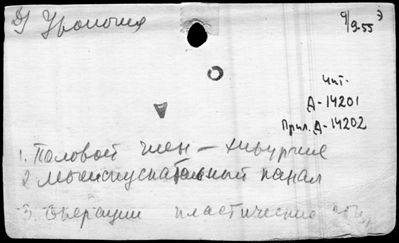 Урология
9/9-55
Чит.
Д-14201
Прил. Д-14202
1. Половой член – хирургия
2 Мочеиспускательный канал
3. Операции пластические